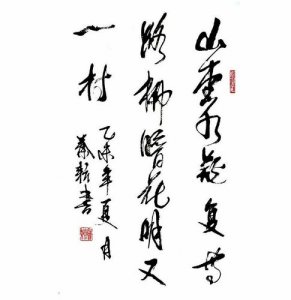 山重水疑复无
路柳暗花明又
一村
乙未年夏月
书